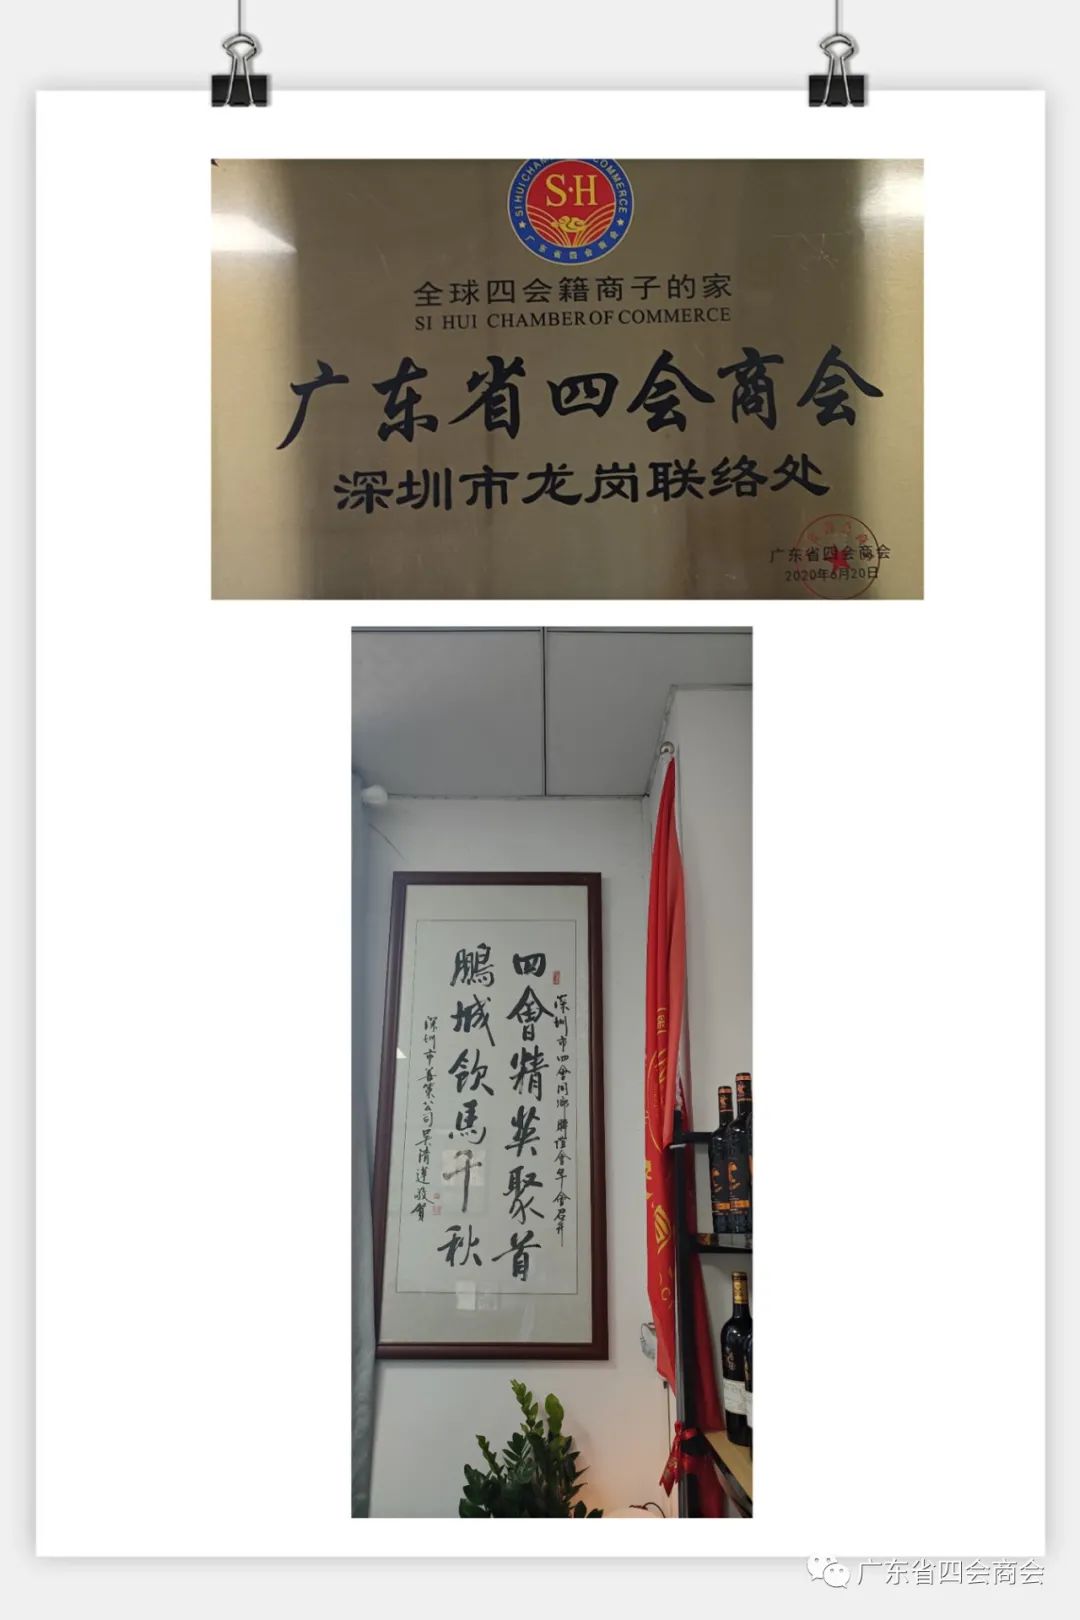 SI HUI CHAMBER OF COMMERCE
S·H
广东省四会商会
全球四会籍商子的家
SI HUI CHAMBER OF COMMERCE
广东省四会商会
深圳市龙岗联络处
广东省四会商会
2020年6月20日
深圳市四會同鄉聯誼會年會召開
四會精英聚首
鵬城飲馬千秋
深圳市善策公司吴清蓮敬賀
广东省四会商会